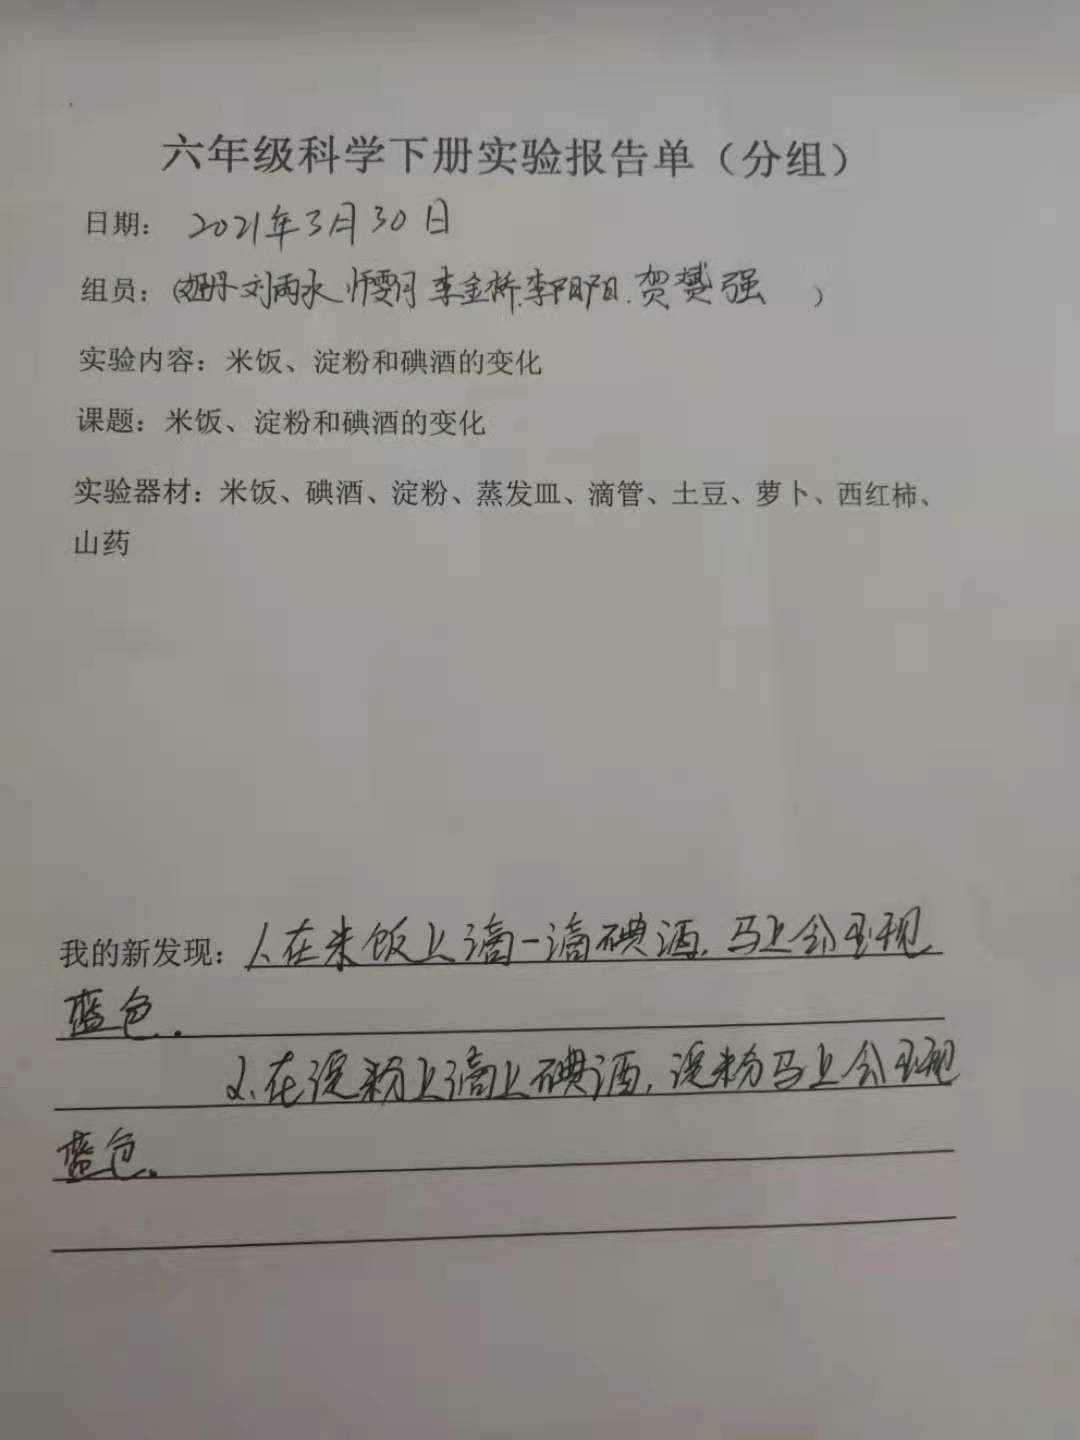 六年级科学下册实验报告单（分组）
日期：2021年3月30日
组员：（ 刘雨水 李金桥.李阳阳.贺赟强 ）
实验内容：米饭、淀粉和碘酒的变化
课题：米饭、淀粉和碘酒的变化
实验器材：米饭、碘酒、淀粉、蒸发皿、滴管、土豆、萝卜、西红柿、
山药
我的新发现：1.在米饭上滴一滴碘酒,马上会呈现
蓝色.
2.在淀粉上滴上碘酒,淀粉马上会呈现
蓝色.